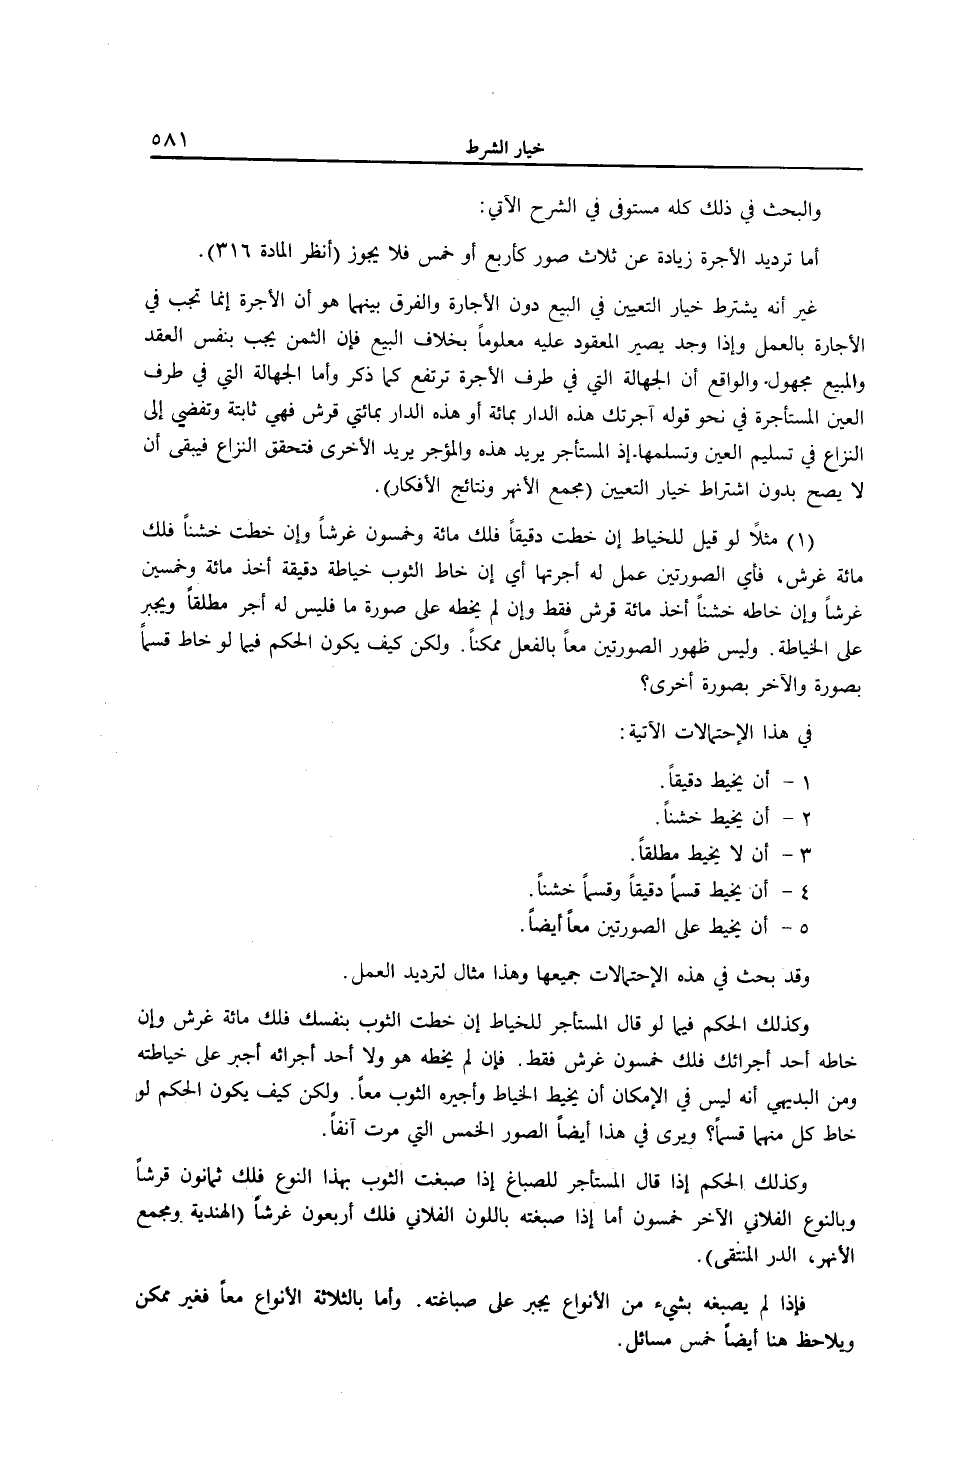 خيار الشرط ٥٨١
والبحث في ذلك كله مستوفى في الشرح الآتي:
أما ترديد الأجرة زيادة عن ثلاث صور كأربع أو خمس فلا يجوز (أنظر المادة ٣١٦).
غير أنه يشترط خيار التعيين في البيع دون الأجارة والفرق بينهما هو أن الأجرة إنما تجب في
الأجارة بالعمل وإذا وجد يصير المعقود عليه معلوماً بخلاف البيع فإن الثمن يجب بنفس العقد
والمبيع مجهول. والواقع أن الجهالة التي في طرف الأجرة ترتفع كما ذكر وأما الجهالة التي في طرف
العين المستأجرة في نحو قوله آجرتك هذه الدار بمائة أو هذه الدار بمائتي قرش فهي ثابتة وتفضي إلى
النزاع في تسليم العين وتسلمها.إذ المستأجر يريد هذه والمؤجر يريد الأخرى فتحقق النزاع فيبقى أن
لا يصح بدون اشتراط خيار التعيين (مجمع الأنهر ونتائج الأفكار).
(١) مثلًا لو قيل للخياط إن خطت دقيقاً فلك مائة وخمسون غرشاً وإن خطت خشناً فلك
مائة غرش، فأي الصورتين عمل له أجرتها أي إن خاط الثوب خياطة دقيقة أخذ مائة وخمسين
غرشاً وإن خاطه خشناً أخذ مائة قرش فقط وإن لم يخطه على صورة ما فليس له أجر مطلقاً ويجبر
على الخياطة. وليس ظهور الصورتين معاً بالفعل ممكناً. ولكن كيف يكون الحكم فيما لو خاط قسماً
بصورة والآخر بصورة أخرى؟
في هذا الإحتمالات الآتية:
١ - أن يخيط دقيقاً.
٢ - أن يخيط خشناً.
٣ - أن لا يخيط مطلقاً.
٤ - أن يخيط قسماً دقيقاً وقسماً خشناً.
٥ - أن يخيط على الصورتين معاً أيضاً.
وقد بحث في هذه الإحتمالات جميعها وهذا مثال لترديد العمل.
وكذلك الحكم فيما لو قال المستأجر للخياط إن خطت الثوب بنفسك فلك مائة غرش وإن
خاطه أحد أجرائك فلك خمسون غرش فقط. فإن لم يخطه هو ولا أحد أجرائه أجبر على خياطته
ومن البديهي أنه ليس في الإمكان أن يخيط الخياط وأجيره الثوب معاً. ولكن كيف يكون الحكم لو
خاط كل منهما قسماً؟ ويرى في هذا أيضاً الصور الخمس التي مرت آنفاً.
وكذلك الحكم إذا قال المستأجر للصباغ إذا صبغت الثوب بهذا النوع فلك ثمانون قرشاً
وبالنوع الفلاني الآخر خمسون أما إذا صبغته باللون الفلاني فلك أربعون غرشاً (الهندية ومجمع
الأنهر، الدر المنتقى).
فإذا لم يصبغه بشيء من الأنواع يجبر على صباغته. وأما بالثلاثة الأنواع معاً فغير ممكن
ويلاحظ هنا أيضاً خمس مسائل.